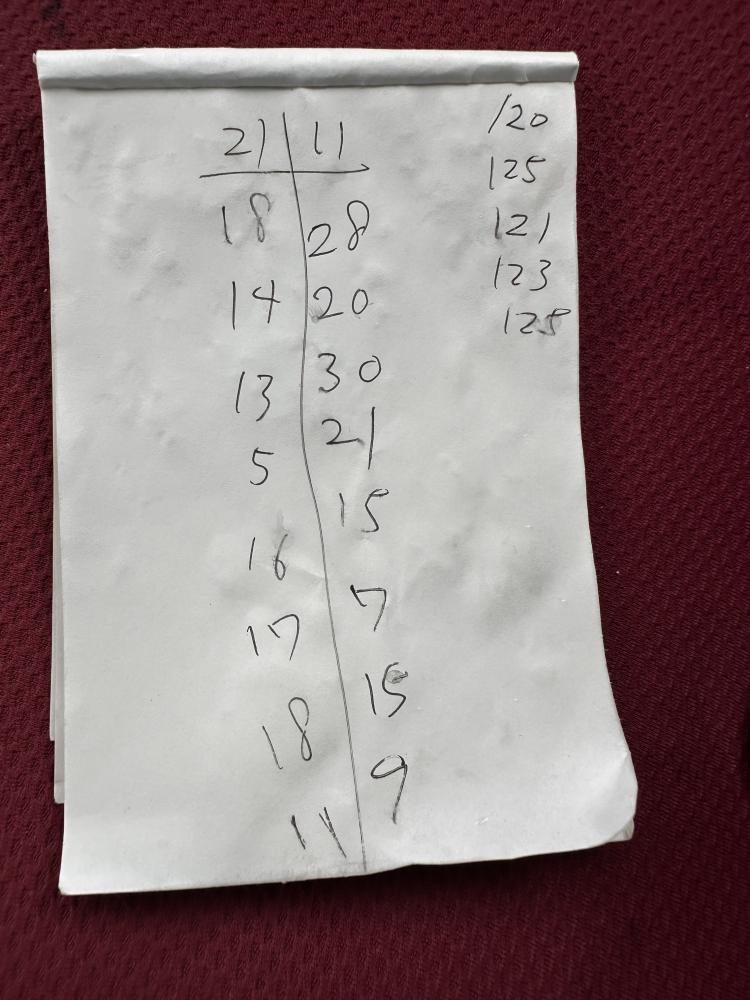 21 11 120
125
18 28 121
14 20 123
125
13 30
5 21
16 15
17 7
18 15
11 9